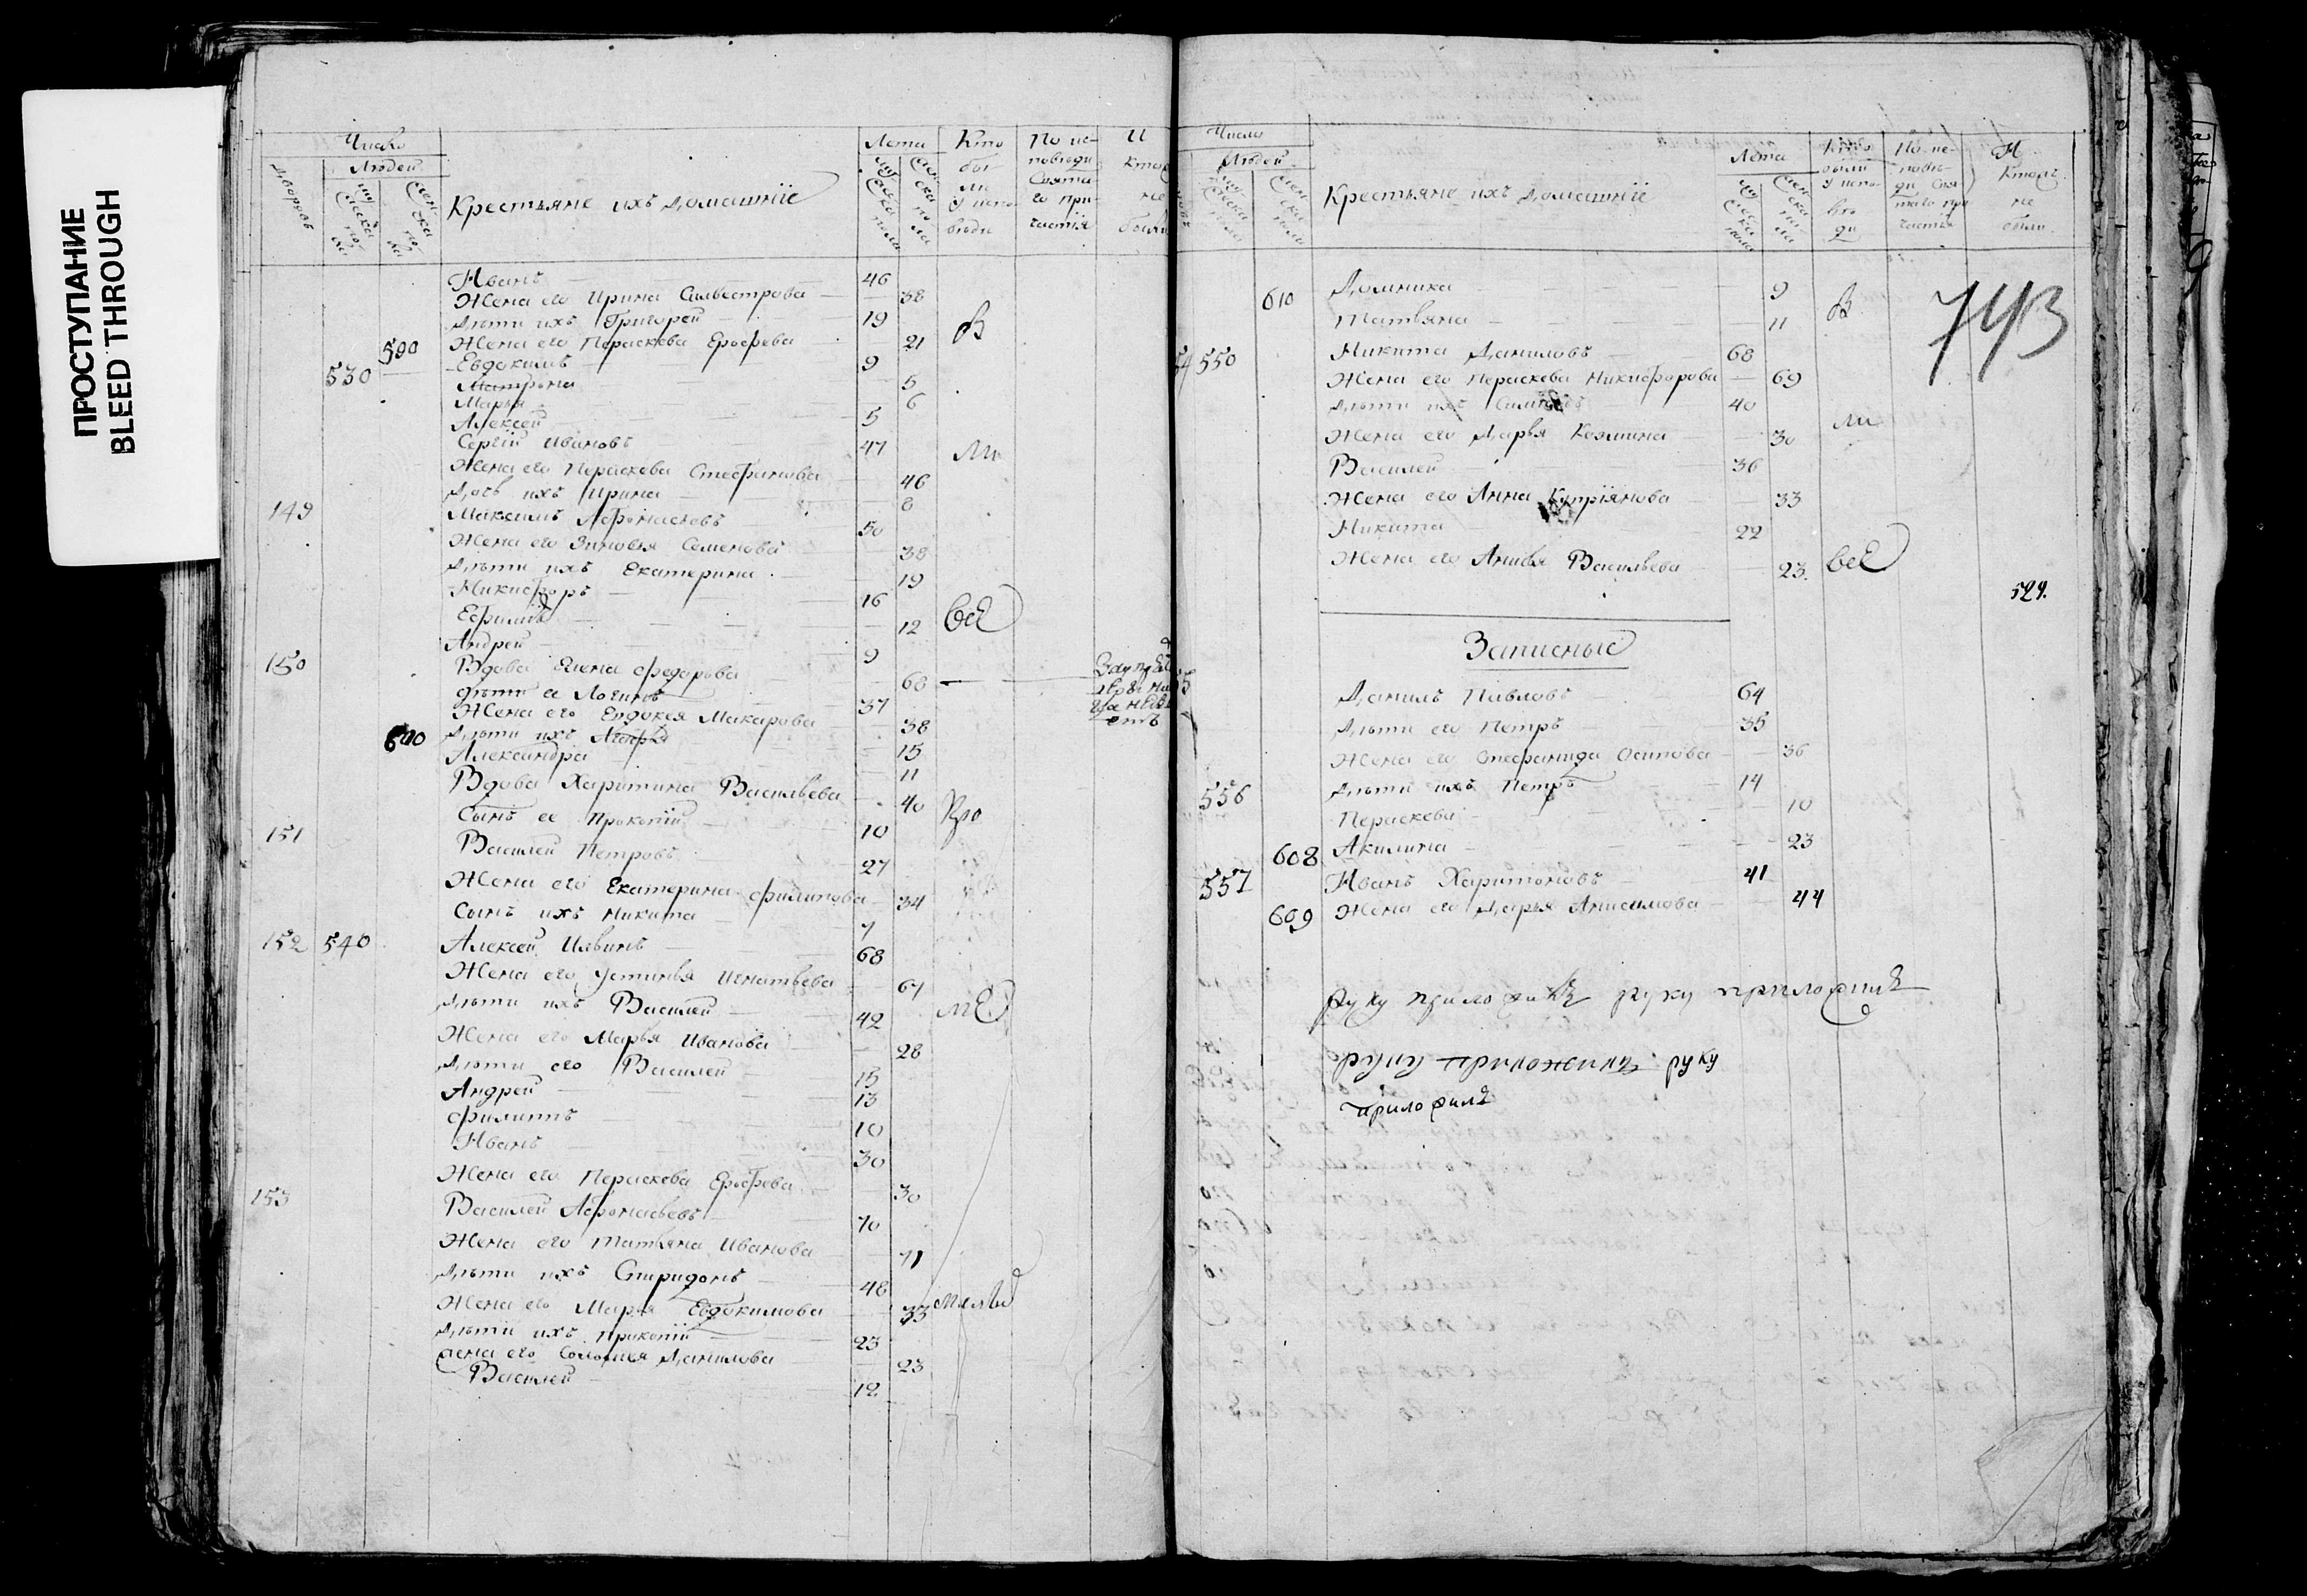 ПРОСТУПАНИЕ
BLEED THROUGH
Число
Людей
Крестьяне ихъ домашнїе
Лета
Кто бы ли у испо веди
По ис поведи Свята го при частїя
И кто не были
Иванъ 46
Жена его Ирина Силвестрова 38
Дѣти ихъ Григорей 19
590 Жена его Пераскева Ерофеева 21
530 Евдокимъ 9
Матрона 5
Марья 6
Алексей 5
Сергїй Ивановъ 47
Жена его Пераскева Стефанова 46
Дочь ихъ Ирина 8
149 Максимъ Афонасьевъ 50
Жена его Зиновья Семенова 38
Дѣти ихъ Екатерина 19
Никифоръ 16
Ефимїя 12
Андрей 9
150 Вдова Елена Федорова 60
Дѣти ее Логинъ 37
Жена его Евдокея Макарова 38
600 Дѣти ихъ 15
Александра 11
Вдова Харитина Васильева 40
Сынъ ее Прокопїй 10
151 Василей Петровъ 27
Жена его Екатерина Филипова 34
Сынъ ихъ Никита 7
152 540 Алексей Ильинъ 68
Жена его Устинья Игнатьева 67
Дѣти ихъ Василей 42
Жена его Марья Иванова 28
Дѣти его Василей 15
Андрей 13
Филиппъ 10
Иванъ 30
Жена его Пераскева Ерофеева 30
153 Василей Афонасьевъ 70
Жена его Татьяна Иванова 71
Дѣти ихъ Спиридонъ 48
Жена его Марья Евдокимова 33
Дѣти ихъ Прокопїй 23
Жена его Соломея Данилова 23
Василей 12
Число
Людей
Крестьяне ихъ домашнїе
Лета
Кто были у испо ве ди
По ис пове ди Свя таго при частья
И кто не были
743
610 Домника 9
Татьяна 11
54 550 Никита Даниловъ 68
Жена его Пераскева Никифорова 69
Дѣти ихъ 40
Жена его Дарья Козмина 30
Василей 36
Жена его Анна Купрїянова 33
Никита 22
Жена его Анисья Васильева 23
529
Записныє
Данилъ Павловъ 64
Дѣти его Петръ 35
Жена его Стефанида Осипова 36
556 Дѣти ихъ Петръ 14
Пераскева 10
608 Акилина 23
557 Иванъ Харитоновъ 41
609 Жена его Дарья Анисимова 44
руку приложилъ руку приложилъ
руку приложилъ руку
приложилъ